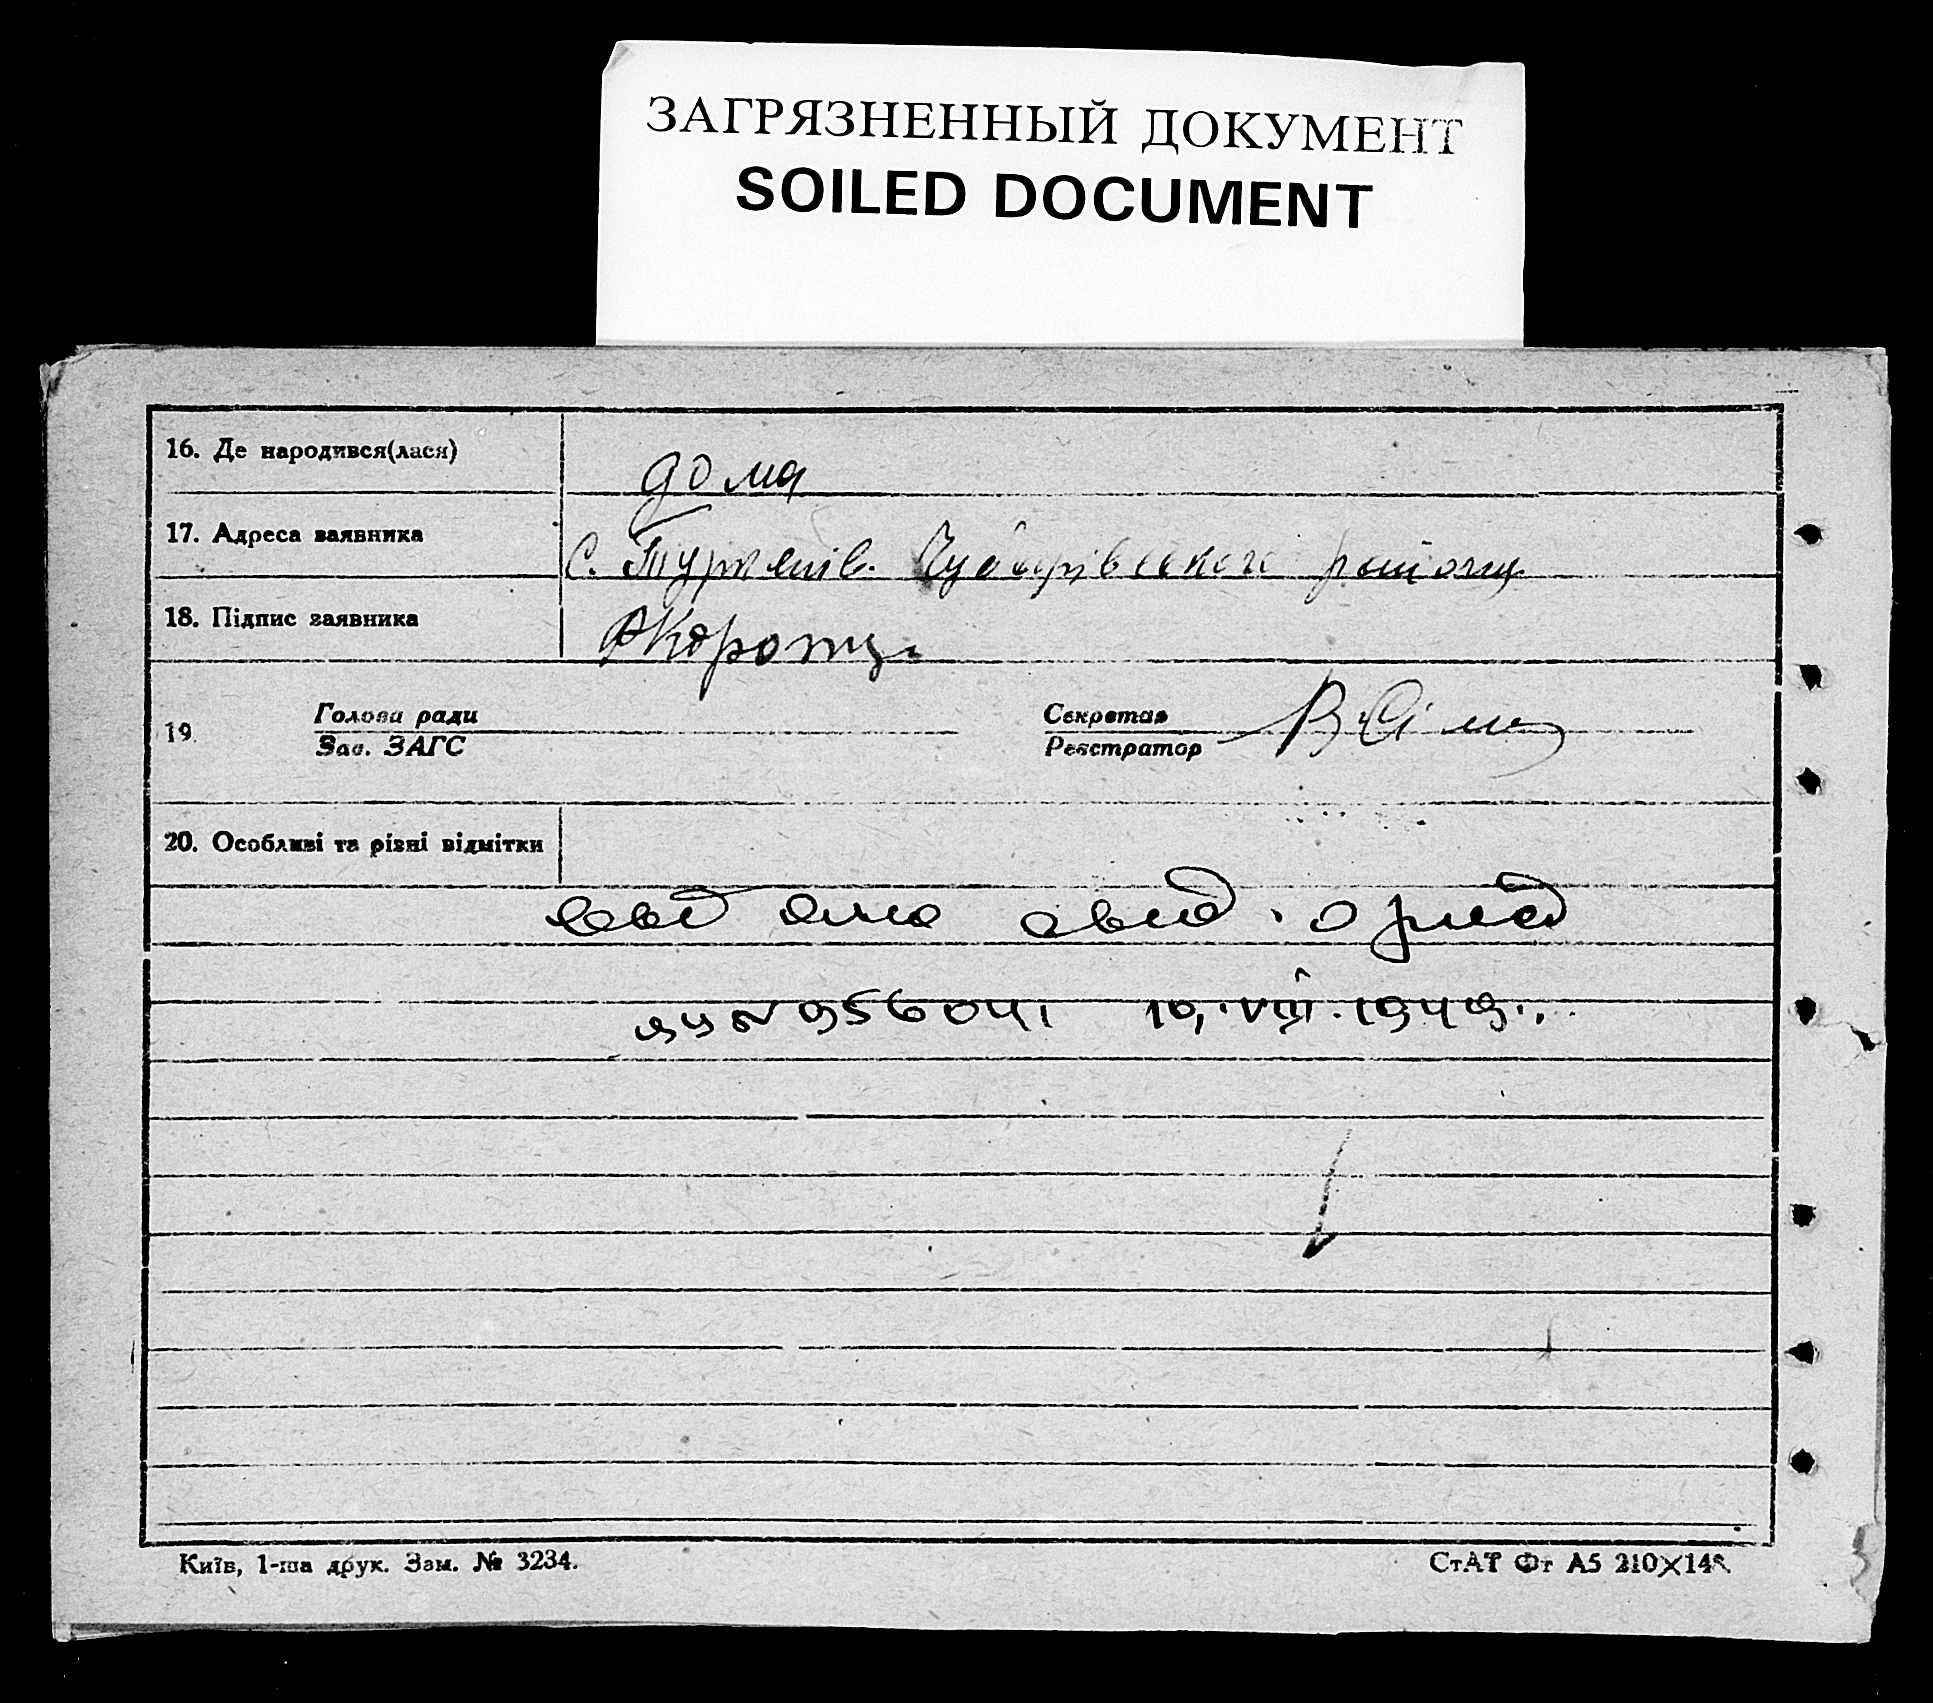 ЗАГРЯЗНЕННЫЙ ДОКУМЕНТ
SOILED DOCUMENT
16. Де народився(лася)
дома
17. Адреса заявника
с. Чубарівського району
18. Підпис заявника
19. Голова ради
Зав. ЗАГС
Секретар
Реєстратор
20. Особливі та різні відмітки
956041 10.VIII.1949.
Київ, 1-ша друк. Зам. № 3234.
СтАТ Фт А5 210×148